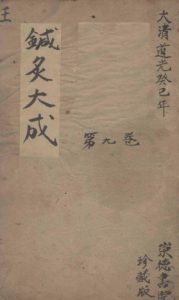 大清道光癸巳年
第九卷
鍼灸大成
王
崇德書院
珍藏版